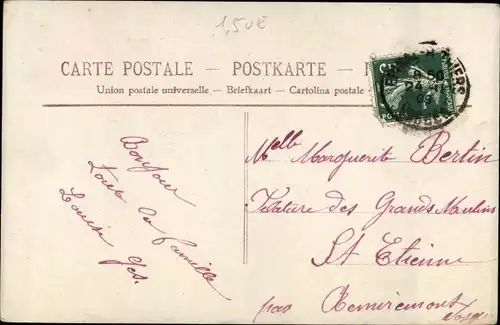 1,50€
CARTE POSTALE — POSTKARTE —
Union postale universelle. – Briefkaart. – Cartolina postale
Bonjour
toute la famille
Louise
Melle Marguerite Bertin
Filature des Grands Moulins
St Etienne
par Remiremont
Vosges